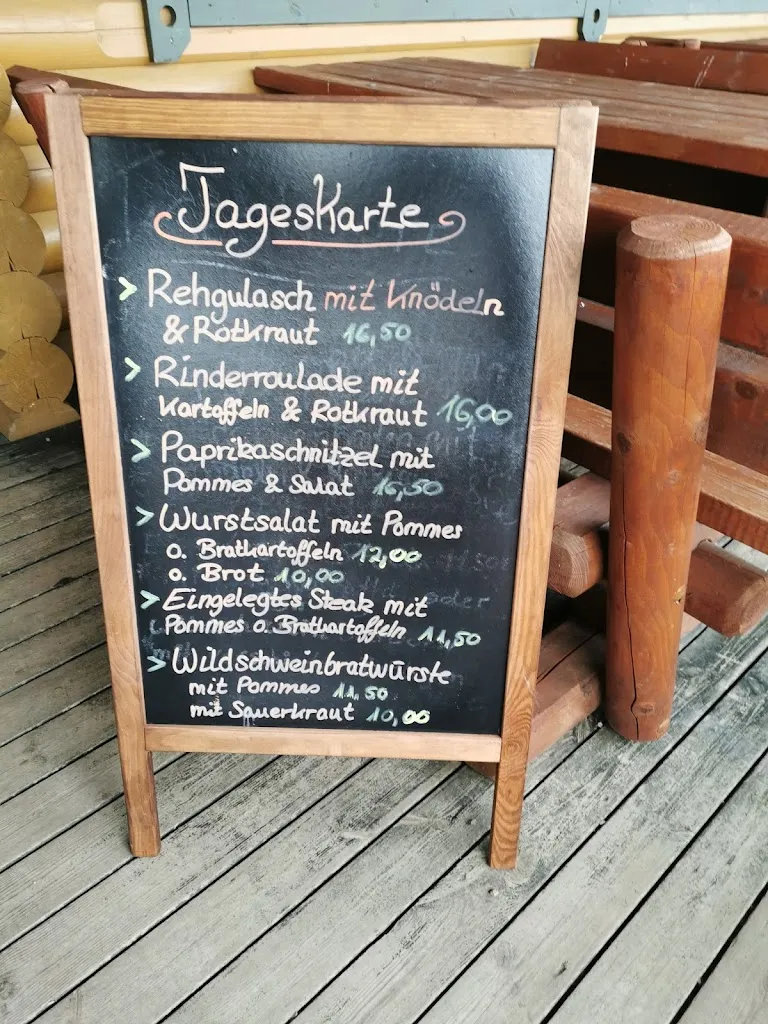 Tageskarte
> Rehgulasch mit Knödeln
& Rotkraut 16,50
> Rinderroulade mit
Kartoffeln & Rotkraut 16,00
> Paprikaschnitzel mit
Pommes & Salat 16,50
> Wurstsalat mit Pommes
o. Bratkartoffeln 12,00
o. Brot 10,00
> Eingelegtes Steak mit
Pommes o. Bratkartoffeln 11,50
> Wildschweinbratwürste
mit Pommes 11.50
mit Sauerkraut 10,00